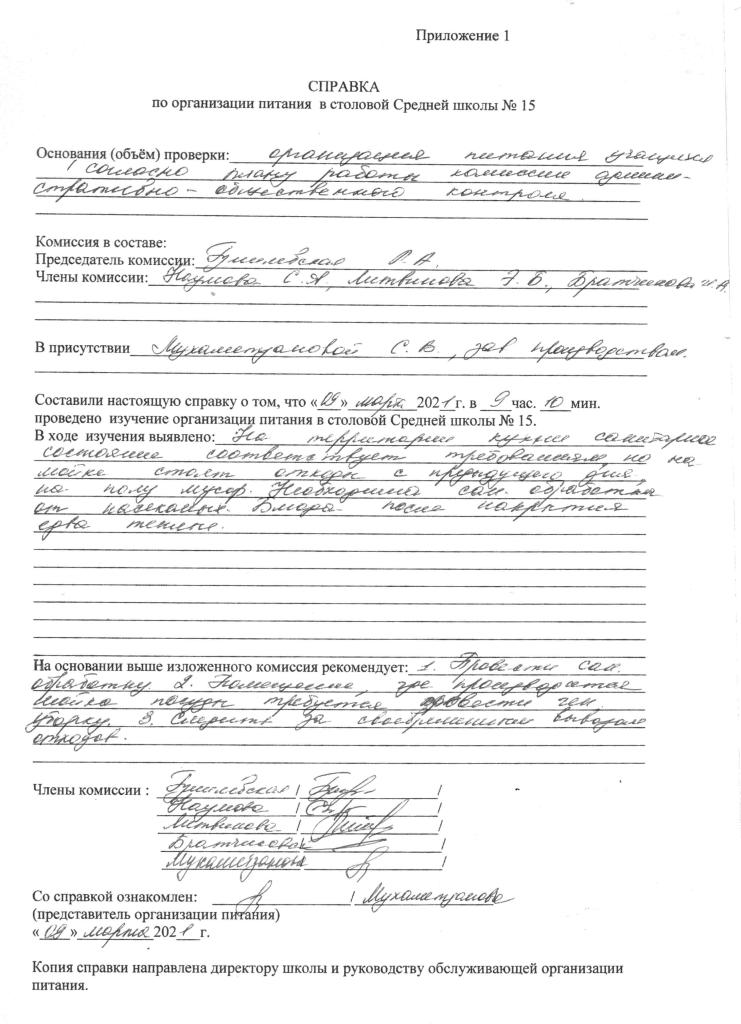 Приложение 1
СПРАВКА
по организации питания в столовой Средней школы № 15
Основания (объём) проверки: организация питания учащихся
согласно плану работы комиссии админи-
стративно - общественного контроля.
Комиссия в составе:
Председатель комиссии: Р. А.
Члены комиссии: Наумова С. А, Литвинова Э. Б., Братчикова И. А.
В присутствии Мухаметзяновой С. В., зав производством.
Составили настоящую справку о том, что «09» март 2021г. в 9 час. 10 мин.
проведено изучение организации питания в столовой Средней школы № 15.
В ходе изучения выявлено: На территории кухни санитарное
состояние соответствует требованиям, но на
мойке стоят отходы с предыдущего дня,
на полу мусор. Необходима сан. обработка
от насекомых. Блюда после накрытия
едва теплые.
На основании выше изложенного комиссия рекомендует: 1. Провести сан.
обработку. 2. Помещение, где производится
мойка посуды требуется провести ген.
уборку. 3. Следить за своевременным вывозом
отходов.
Члены комиссии : / /
Наумова / /
Литвинова / /
Братчикова / /
Мухаметзянова / /
Со справкой ознакомлен: / Мухаметзянова
(представитель организации питания)
«09» марта 2021г.
Копия справки направлена директору школы и руководству обслуживающей организации
питания.